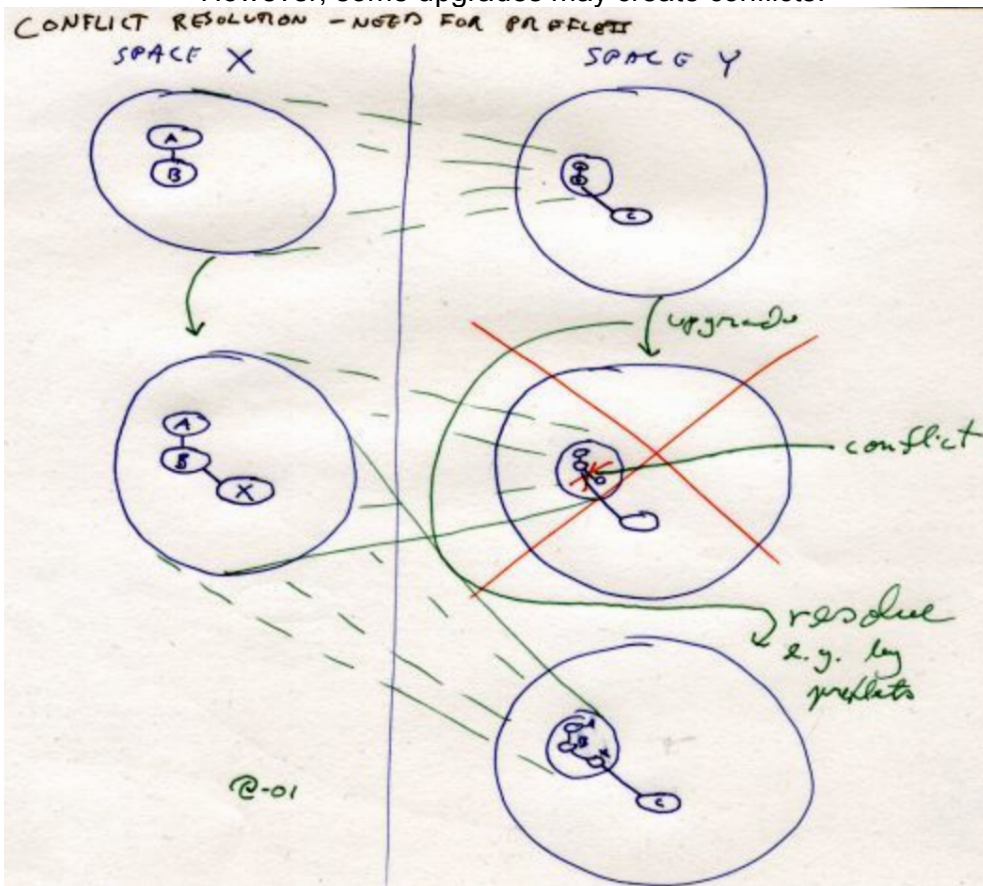 However, some upgrades may create conflicts.
CONFLICT RESOLUTION - NEED FOR
SPACE X
SPACE Y
A
B
C
upgrade
A
B
X
conflict
resolve
e.g. by
preflets
B
C
@-01